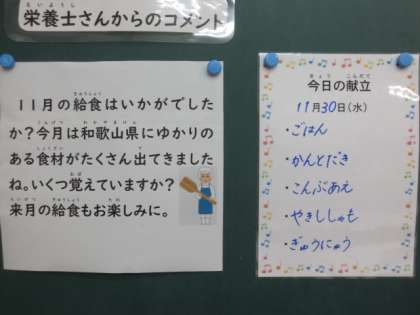 栄養士さんからのコメント
11月の給食はいかがでした
か?今月は和歌山県にゆかりの
ある食材がたくさん出てきました
ね。いくつ覚えていますか?
来月の給食もお楽しみに。
今日の献立
11月30日(水)
・ごはん
・かんとだき
・こんぶあえ
・やきししゃも
・ぎゅうにゅう